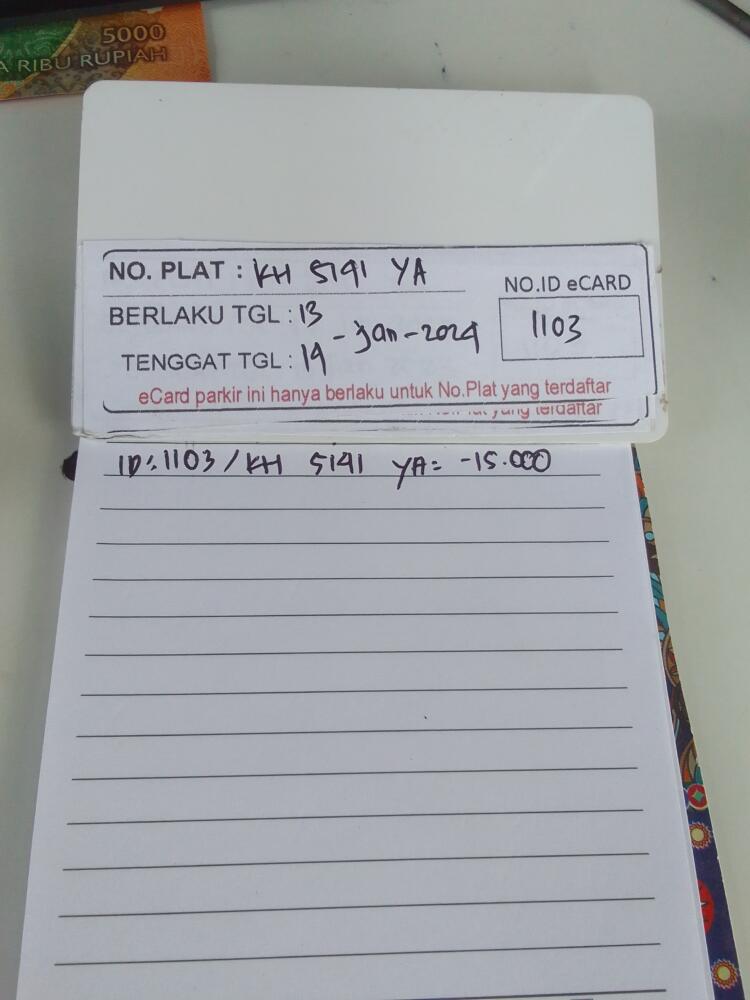 5000
A RIBU RUPIAH
NO. PLAT : KH 5191 YA
NO.ID eCARD
BERLAKU TGL : 13
1103
- Jan - 2024
TENGGAT TGL : 14
eCard parkir ini hanya berlaku untuk No.Plat yang terdaftar
No.Plat yang terdaftar
ID : 1103 / KH 5191 YA = -15.000